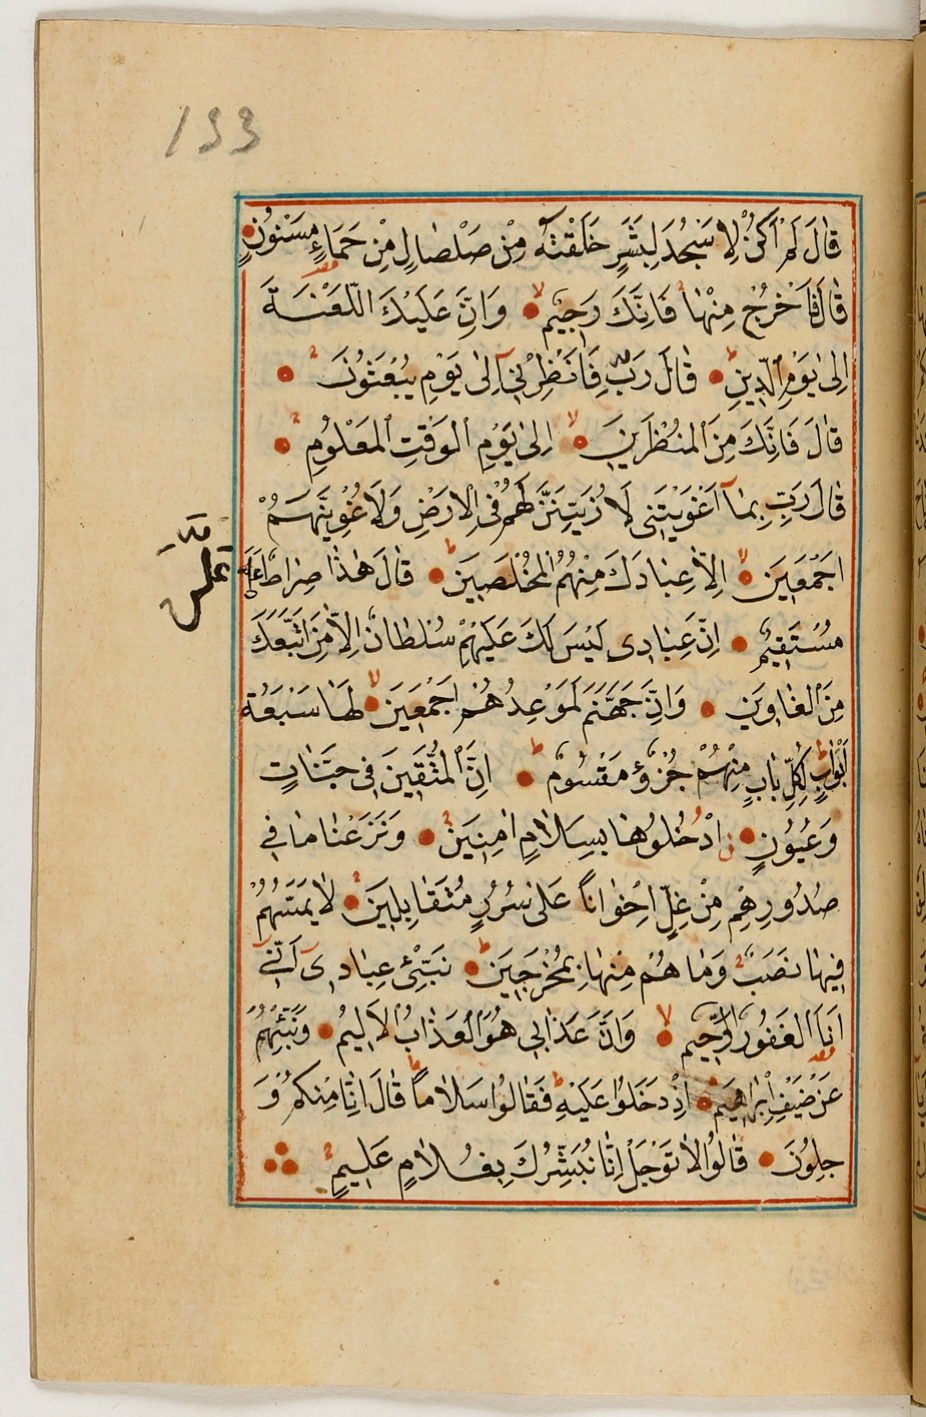 133
قٰالَ لَمْ اَكُنْ لِاَسْجُدَ لِبَشَرٍ خَلَقْتَهُ مِنْ صَلْصٰالٍ مِنْ حَمَاءٍ مَسْنُونٍ
قٰالَ فَاخْرُجْ مِنْهٰا فَاِنَّكَ رَجٖيمٌ وَاِنَّ عَلَيْكَ اللَّعْنَةَ
اِلىٰ يَوْمِ الدّٖينِ قٰالَ رَبِّ فَاَنْظِرْنٖى اِلىٰ يَوْمِ يُبْعَثُونَ
قٰالَ فَاِنَّكَ مِنَ الْمُنْظَرٖينَ اِلىٰ يَوْمِ الْوَقْتِ الْمَعْلُومِ
قٰالَ رَبِّ بِمٰا اَغْوَيْتَنٖى لَاُزَيِّنَنَّ لَهُمْ فِى الْاَرْضِ وَلَاُغْوِيَنَّهُمْ
اَجْمَعٖينَ اِلّٰا عِبٰادَكَ مِنْهُمُ الْمُخْلَصٖينَ قٰالَ هٰذٰا صِرٰاطٌ عَلَىَّ
عَلَىَّ
مُسْتَقٖيمٌ اِنَّ عِبٰادٖى لَيْسَ لَكَ عَلَيْهِمْ سُلْطٰانٌ اِلّٰا مَنِ اتَّبَعَكَ
مِنَ الْغٰاوٖينَ وَاِنَّ جَهَنَّمَ لَمَوْعِدُهُمْ اَجْمَعٖينَ لَهٰا سَبْعَةُ
اَبْوٰابٍ لِكُلِّ بٰابٍ مِنْهُمْ جُزْءٌ مَقْسُومٌ اِنَّ الْمُتَّقٖينَ فٖى جَنّٰاتٍ
وَعُيُونٍ اُدْخُلُوهٰا بِسَلٰامٍ اٰمِنٖينَ وَنَزَعْنٰا مٰا فٖى
صُدُورِهِمْ مِنْ غِلٍّ اِخْوٰاناً عَلىٰ سُرُرٍ مُتَقٰابِلٖينَ لٰا يَمَسُّهُمْ
فٖيهٰا نَصَبٌ وَمٰا هُمْ مِنْهٰا بِمُخْرَجٖينَ نَبِّئْ عِبٰادٖى اَنّٖى
اَنَا الْغَفُورُ الرَّحٖيمُ وَاَنَّ عَذٰابٖى هُوَ الْعَذٰابُ الْاَلٖيمُ وَنَبِّئْهُمْ
عَنْ ضَيْفِ اِبْرٰاهٖيمَ اِذْ دَخَلُوا عَلَيْهِ فَقٰالُوا سَلٰاماً قٰالَ اِنّٰا مِنْكُمْ وَ
جِلُونَ قٰالُوا لٰا تَوْجَلْ اِنّٰا نُبَشِّرُكَ بِغُلٰامٍ عَلٖيمٍ